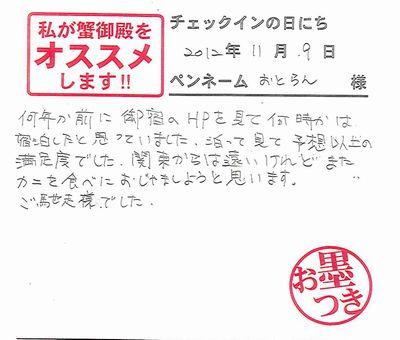 私が蟹御殿を
オススメ
します!!
チェックインの日にち
2012年 11月 9日
ペンネーム おとらん 様
何年か前に 御宿のHPを見て何時かは
宿泊したと思っていました。泊って見て予想以上の
満足度でした。関東からは遠いけれど また
カニを食べに おじゃましようと思います。
ご馳走様でした。
お墨つき